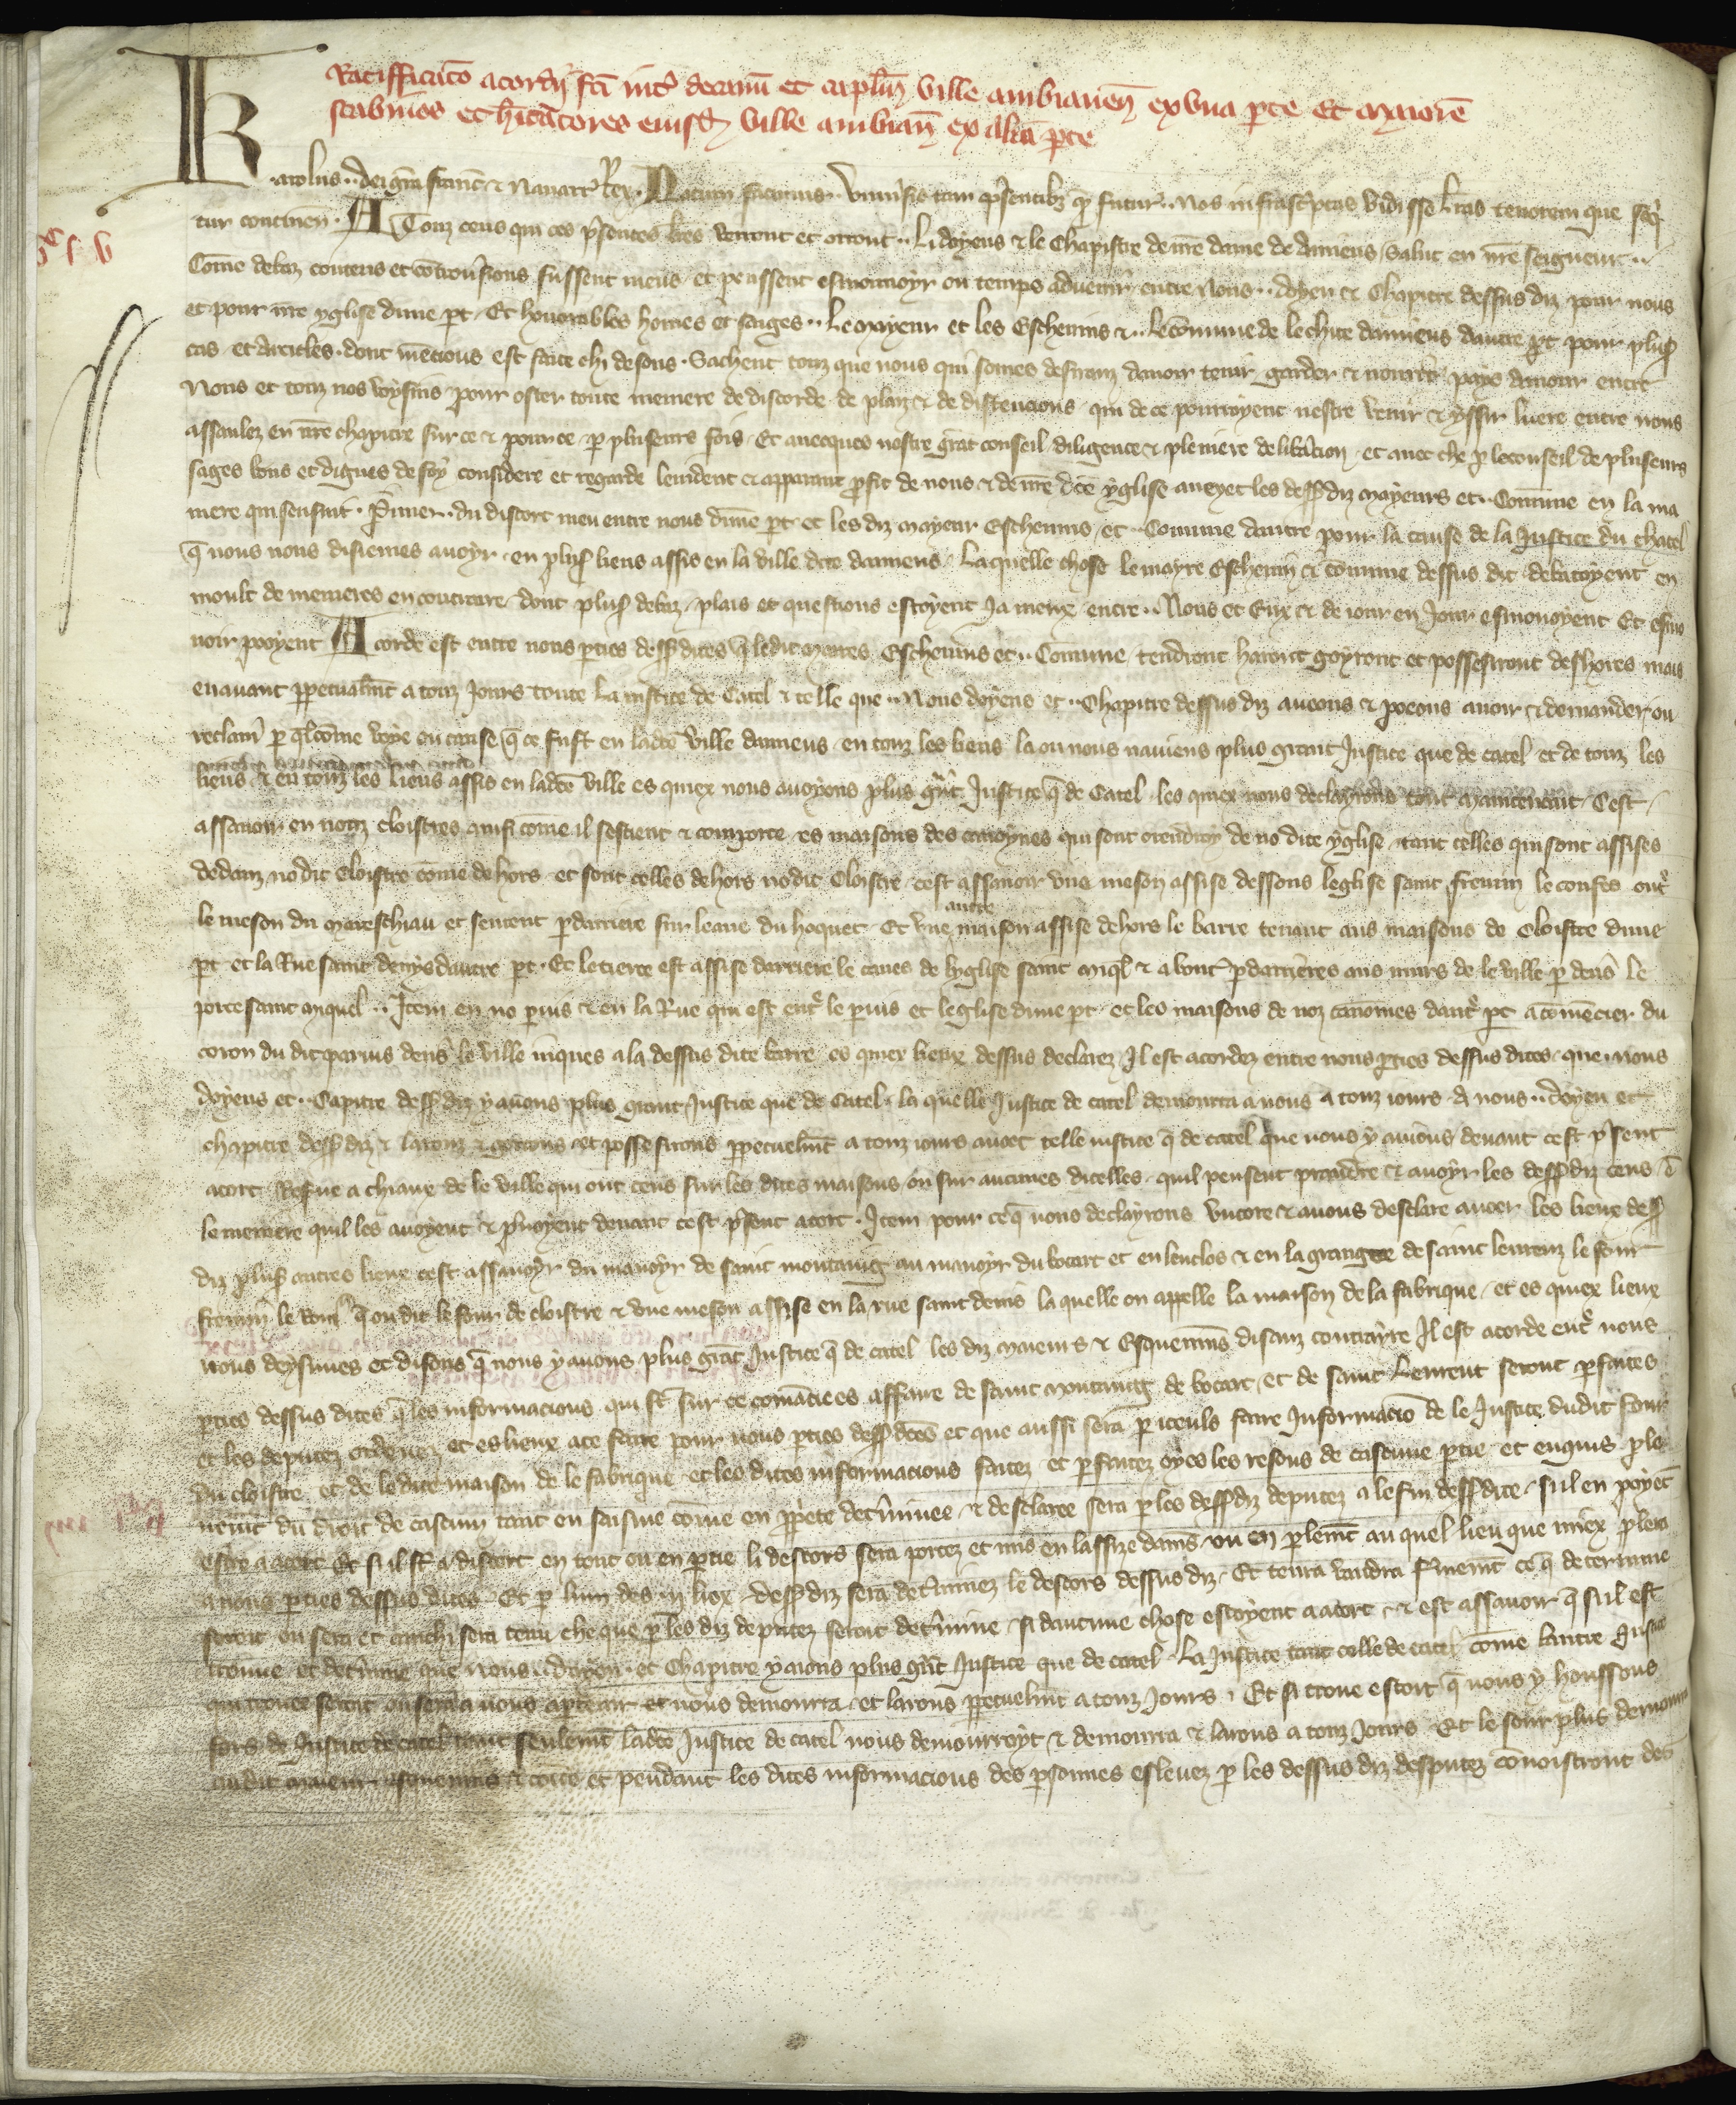 Ratifficatio acordi fci int decanu et caplm ville ambianen ex una pte et maiore
scabinos et hitatores eiusd ville ambian ex alia pte
Karolus dei gra francie et Navarre Rex. Notum facimus Universis tam psentibz qm futur. Nos infrascptas vidisse lras tenorem que sequ
tur continen. A Touz ceus qui ces psentes lres verront et orront. Li doyens et le Chapistre de nre dame de Amiens Salut en nre seigneur
Come debaz contens et controusions fussent meus et peussent esmouvoyr ou temps advenir entre Nous doyen et Chapitre dessus diz pour nous
et pour nre yglise dune pt. Et honorables homes et saiges. Le mayeur et les Eschevins et le comune de le chite damiens dautre pt pour plus
cas et articles dont mencions est faite chi desous. Sachent touz que nous qui somes desiranz davoir tenir garder et nourrir pays damour entre
Nous et touz nos voysins pour oster toute meniere de discorde de plaiz et de dissencions qui de ce pourroyent nestre venir et yssir luere entre nous
assamlez en nre chapitre sur ce et pour ce p pluseurs fois. Et avecques nostre grat conseil diligence et pleniere deliberacion et avec che p le conseil de pluseurs
sages bons et dignes de foy considere et regarde levident et apparant pfit de nous et de nre dce yglise aveyec les dess diz mayeurs et Comune en la ma
niere qui sensuit. Primer. du discort meu entre nous dune pt et les diz mayeur Eschevins et Comune dautre pour la cause de la Justice du chatel
q nous nous disiemes avoyr en plus liens assis en la ville dite damiens. Laquelle chose le mayre Eschevin et comune dessus dit debatoyent en
moult de menieres en contraire dont plus debaz plais et questions estoyent Ja meux entre Nous et Eux et de iour en Jour esmouvoyent Et esmo
uoir pooyent Acorde est entre nous pties dess dites q ledit maires Eschevins et Comune tendront haront goyront et possesiront deshores mais
en avant ppetualmt a touz Jours toute la iustice de Catel et telle que Nous doyens et Chapitre dessus diz aveons et poeons avoir et demander ou
reclam p qlcome voye ou cause q ce fust en ladce ville damiens en touz les liens la ou nous naviens plus grant Justice que de catel et de touz les
liens et en touz les liens assis en ladce ville es quiex nous avoyons plus grat Justice q de Catel les quiex nous declayrons tout maintenant Cest
assavoir en noz cloistres ansi come il sestient et comporte es maisons des canoynes qui sont de no dite yglise tant celles qui sont assises
dedanz no dit Cloistre come dehors et sont celles dehors no dit Cloistre cest assavoir une meson assise dessous leglise saint fremin le confes entr
le meson du mareschiau et sentent pdarriere sur leaue du hoquet Et une autre maison assise dehors le barre tenant aus maisons de Cloistre dune
pt et la Rue saint denys dautre pt. Et le tierce est assise darriere le caues de lyglise saint miql et about pdarrieres aus murs de le ville p deus le
porte saint miquel. Item en no pvis et en la Rue qui est entr le pvis et leglise dune pt et les maisons de noz canoines dautr pt a comencier du
coron du dit parvis devs le ville iuques a la dessus dite barre es quiex lieux dessus declarez Il est acordez entre nous pties dessus dites que nous
doyens et Capitre dess diz y avons plus grant Justice que de Catel. la quelle Justice de catel demourra a nous a touz iours A nous doyen et
chapitre dess diz et larons et gorrons et possesirons ppetuelmt a touz iours avoec telle iustice q de catel que nous y aviens devant cest psent
acort Reserve a chiaux de le ville qui ont cens sur les dites maisons ou sur aucunes dicelles quil peusent prandre et avoyr les dess diz cens e
le meniere quil les avoyent et pnoyent devant cest psent acort. Item pour ce q nous declayrons encore et avons desclare avoer les lieux dess
diz plus autres lieux cest assavoyr du manoyr de saint montaing au manoyr du bocart et en lenclos et en la grange de saint leurenz le four
fremin le q on dit le four de cloistre et une meson assise en la rue saint denis la quelle on appelle la maison de la fabrique et es quiex lieux
nous deysimes et disons q nous y avons plus grat Justice q de catel les diz maieurs et Esquevins disanz contrayre Il est acorde entr nous
pties dessus dites q les informacions qui st sur ce comaciees assavr de saint montaing de bocart et de saint Leurent seront pfaites
et les deputez ordenez et es lieux ace faire pour nous pties dess dces et que aussi sera p iceuls faite Informacio de le Justice dudit four
du cloistre et de le dite maison de le fabrique et les dites informacions faites et pfaites oyes les resons de cascune ptie et enquis ple
nemt du droit de cascun tant en saisine come en ppete detminee et desclaree sera p les dess diz deputez a le fin dess dite sil en poyet
estre a acort Et sil st a discort en tout ou en ptie li descors sera portez et mis en lassize damis ou en plemt au quel lieu que miex plera
a nous pties dessus dites Et p lun des iii liex dess diz sera detminez le descors dessus diz. Et tenra vaudra fmemt ce q determine
seroit ou sera et aucchi sera tenu che que p les diz deputez seroit detmine si daucune chose estoyent a acort et est assavoir q sil est
trouve et detmine que nous doyen et Chapitre y aions plus grat Justice que de catel. La Justice tant celle de catel come lautre Justice
qui trouee seroit ou sera a nous aptenir et nous demourra et larons ppetuelmt a touz Jours. Et si trove estoit q nous y houssons
fors de Justice de catel tant seulemt ladce Justice de catel nous demourroyt et demourra et larons a touz Jours. Et le sour plus demourra
au dit maieur esquevins et coe et pendant les dites informacions des psonnes eslevez p les dessus diz desputez conoistront des